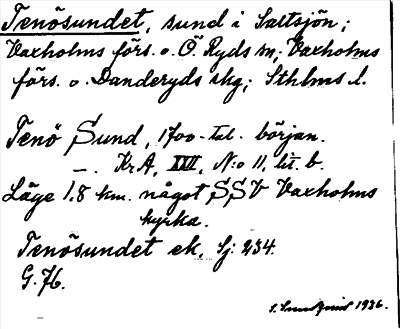 Tenösundet, sund i Saltsjön;
Vaxholms förs. o. Ö. Ryds sn; Vaxholms
förs. o. Danderyds skg; Sthlms l.
Tenö Sund, 1700-tal. början.
—. Kr.A, XXII, N:o 11, lit. b.
Läge 1.8 km. något SSV Vaxholms
kyrka.
Tenösundet ek. Sj: 234.
G. 76.
1936.